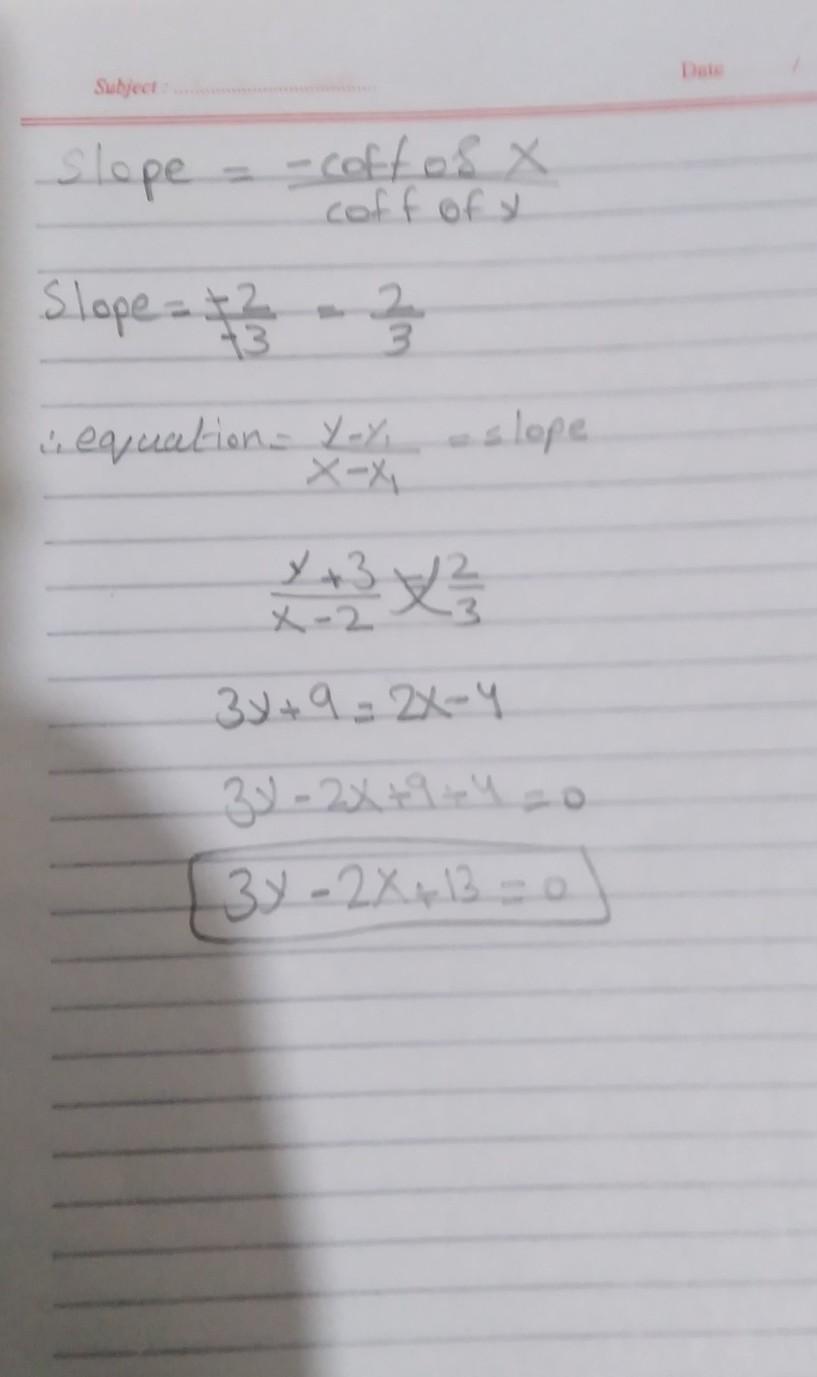 Subject : Date /
Slope = -coff of X / coff of y
Slope = -2/-3 = 2/3
∴ equation = y-y₁ / x-x₁ = slope
y+3 / x-2 = 2/3
3y+9 = 2x-4
3y-2x+9+4 = 0
3y-2x+13 = 0